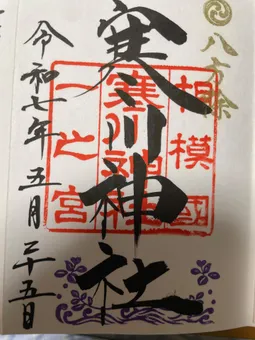 八方除
相模國
寒川神社
一之宮
寒川神社
令和七年五月二十五日